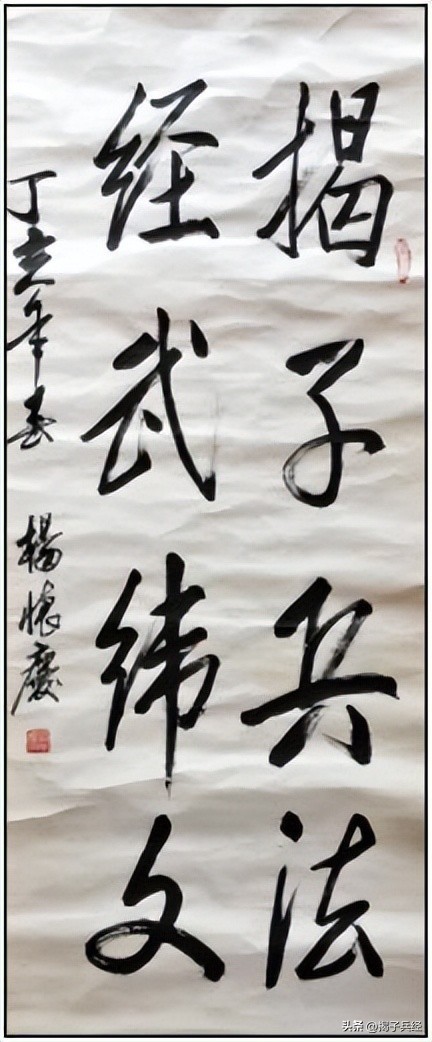 揭子兵法
经武纬文
丁亥年春 楊懷慶
头条 @揭子兵经